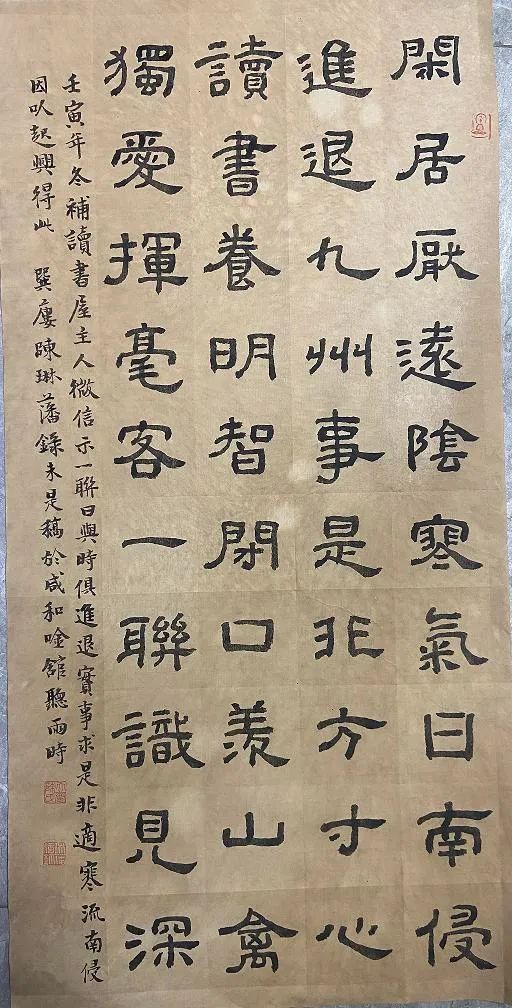 閑居厭遠陰寒氣日南侵
進退九州事是非方寸心
讀書養明智閉口羨山禽
獨愛揮毫客一聯識見深
壬寅年冬補讀書屋主人微信示一聯曰與時俱進退實事求是非適寒流南侵
因以起興得此 巽廔陳琳藩錄未是稿於咸和唫館聽雨時